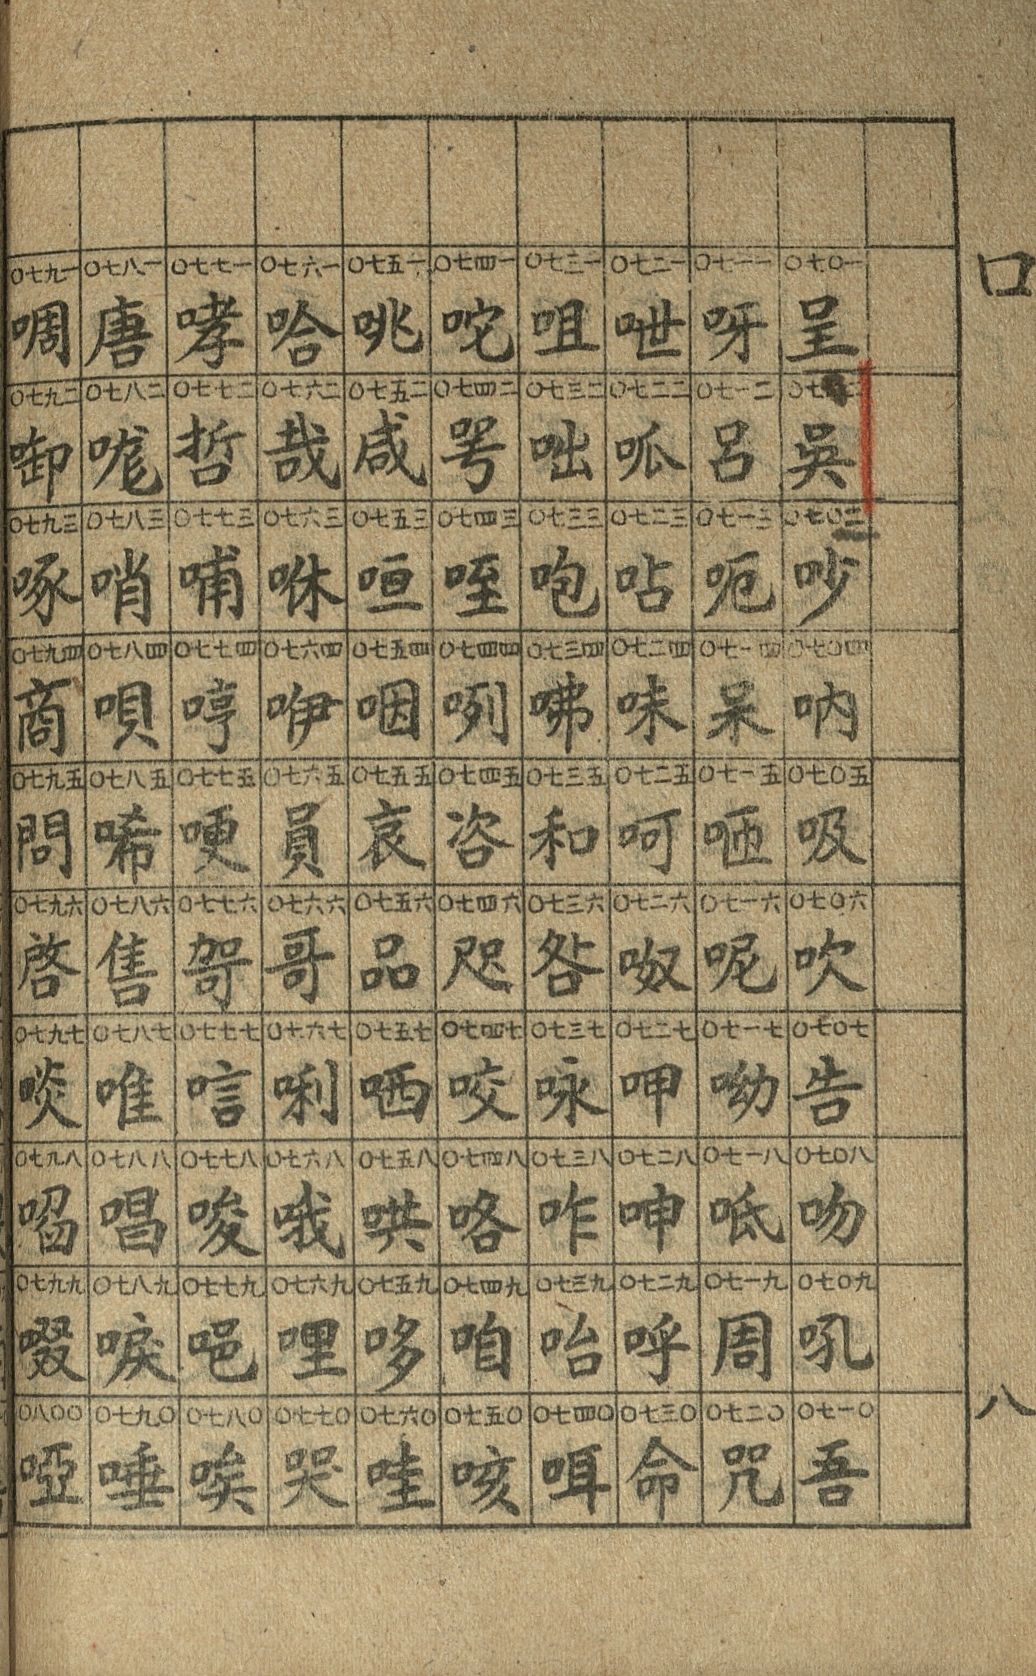 口
八
〇七〇一 呈
〇七〇二 吳
〇七〇三 吵
〇七〇四 吶
〇七〇五 吸
〇七〇六 吹
〇七〇七 告
〇七〇八 吻
〇七〇九 吼
〇七一〇 吾
〇七一一 呀
〇七一二 呂
〇七一三 呃
〇七一四 呆
〇七一五 咂
〇七一六 呢
〇七一七 呦
〇七一八 呧
〇七一九 周
〇七二〇 咒
〇七二一 呭
〇七二二 呱
〇七二三 呫
〇七二四 味
〇七二五 呵
〇七二六 呶
〇七二七 呷
〇七二八 呻
〇七二九 呼
〇七三〇 命
〇七三一 咀
〇七三二 咄
〇七三三 咆
〇七三四 咈
〇七三五 和
〇七三六 咎
〇七三七 咏
〇七三八 咋
〇七三九 咍
〇七四〇 咡
〇七四一 咤
〇七四二 咢
〇七四三 咥
〇七四四 咧
〇七四五 咨
〇七四六 咫
〇七四七 咬
〇七四八 咯
〇七四九 咱
〇七五〇 咳
〇七五一 咷
〇七五二 咸
〇七五三 咺
〇七五四 咽
〇七五五 哀
〇七五六 品
〇七五七 哂
〇七五八 哄
〇七五九 哆
〇七六〇 哇
〇七六一 哈
〇七六二 哉
〇七六三 咻
〇七六四 咿
〇七六五 員
〇七六六 哥
〇七六七 唎
〇七六八 哦
〇七六九 哩
〇七七〇 哭
〇七七一 哮
〇七七二 哲
〇七七三 哺
〇七七四 哼
〇七七五 哽
〇七七六 哿
〇七七七 唁
〇七七八 唆
〇七七九 唈
〇七八〇 唉
〇七八一 唐
〇七八二 哤
〇七八三 哨
〇七八四 唄
〇七八五 唏
〇七八六 售
〇七八七 唯
〇七八八 唱
〇七八九 唳
〇七九〇 唾
〇七九一 啁
〇七九二 啣
〇七九三 啄
〇七九四 商
〇七九五 問
〇七九六 啓
〇七九七 啖
〇七九八 啗
〇七九九 啜
〇八〇〇 啞